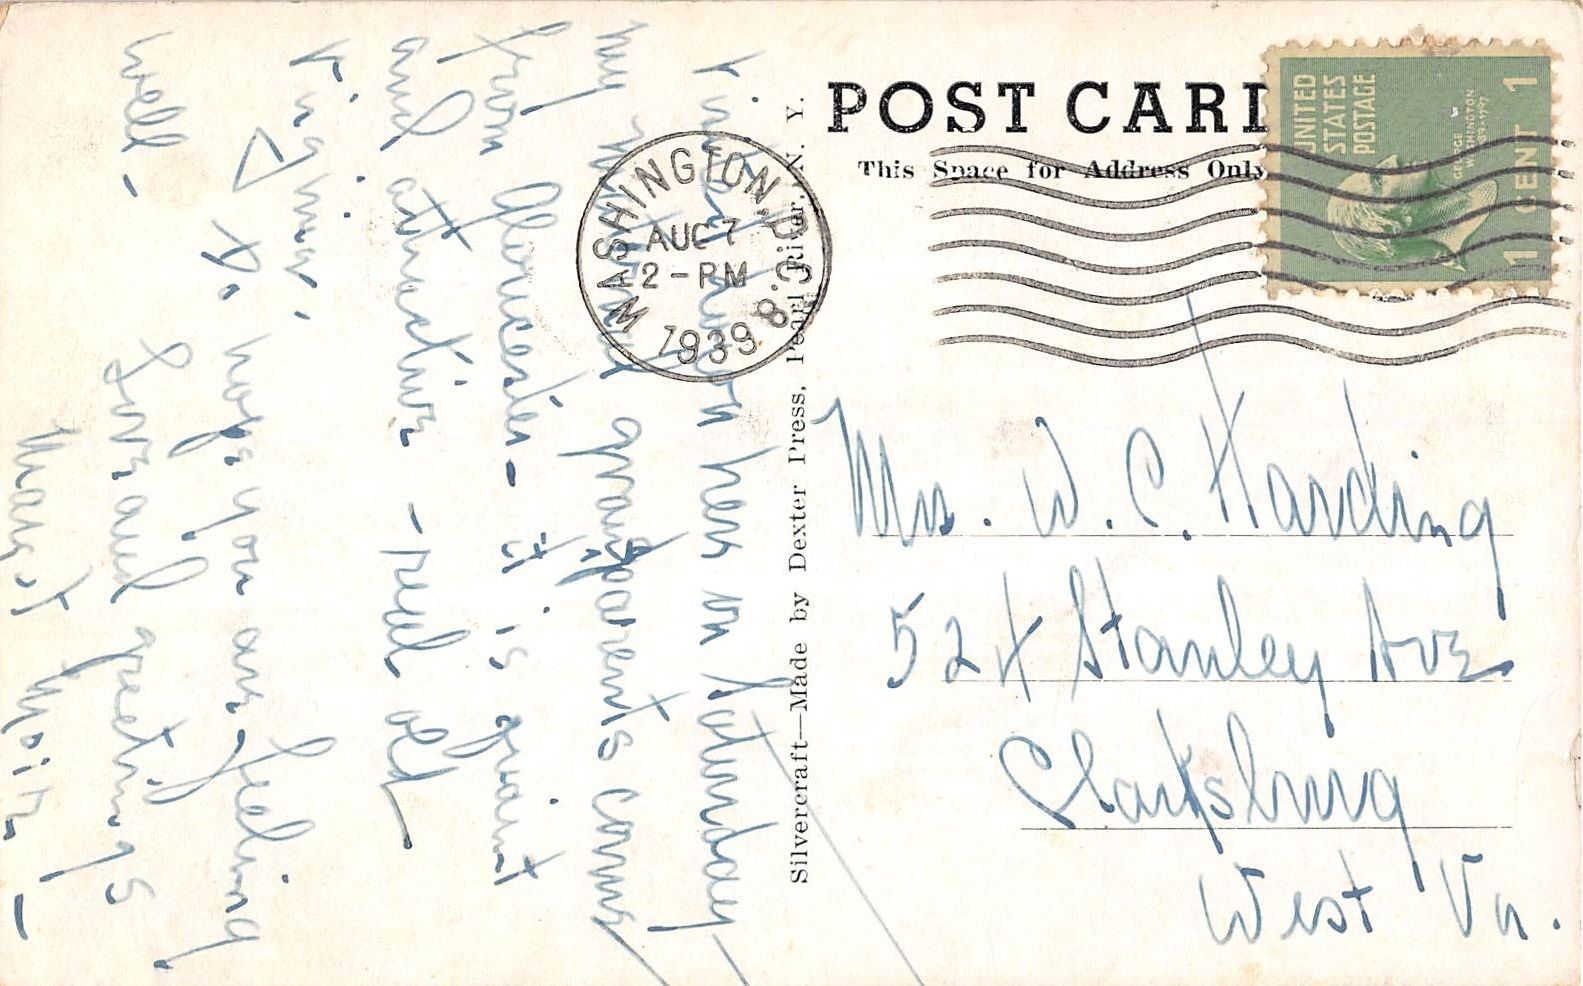 POST CARD
This Space for Address Only
UNITED
STATES
POSTAGE
GEORGE
WASHINGTON
1789-1797
1 CENT 1
WASHINGTON, D.C. 8
AUG 7
2-PM
1939
Silvercraft—Made by Dexter Press, Pearl River, N. Y.
Mrs. W. C. Harding
524 Stanley Ave
Clarksburg
West Va.
here on Saturday
my maternal grandparents came
from Gloucester - it is quaint
and attractive - real old
Virginia.
I do hope you are feeling
well -
Love and greetings